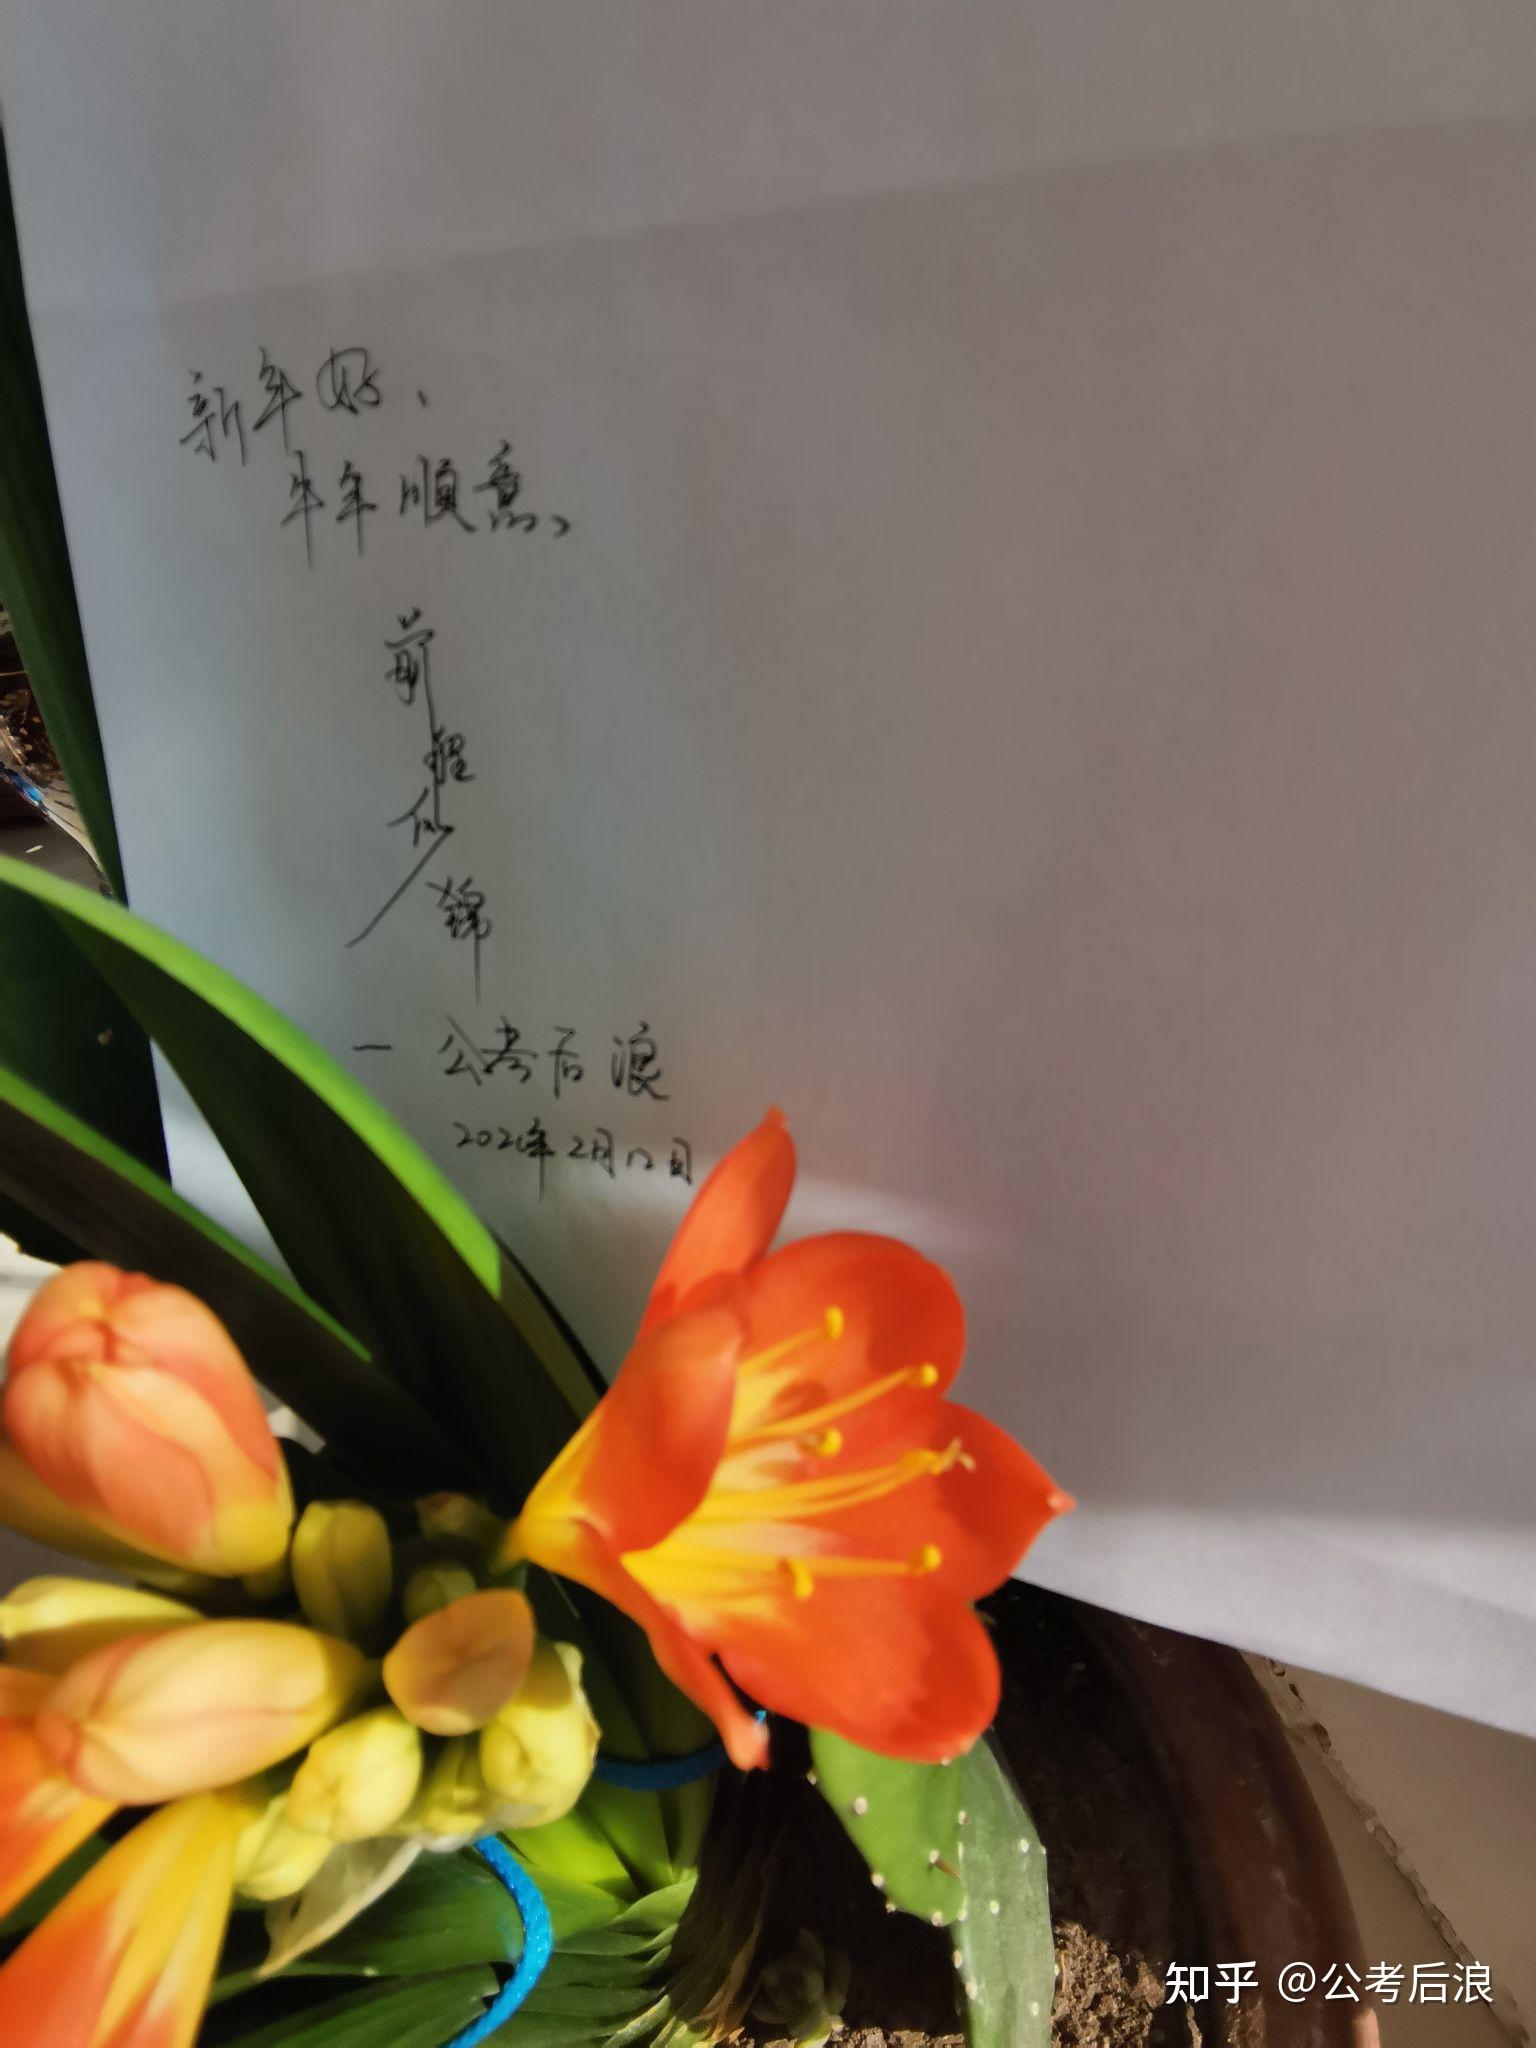 新年好、
牛年顺意、
前
程
似
锦
一 公考后浪
2021年2月12日
知乎 @公考后浪